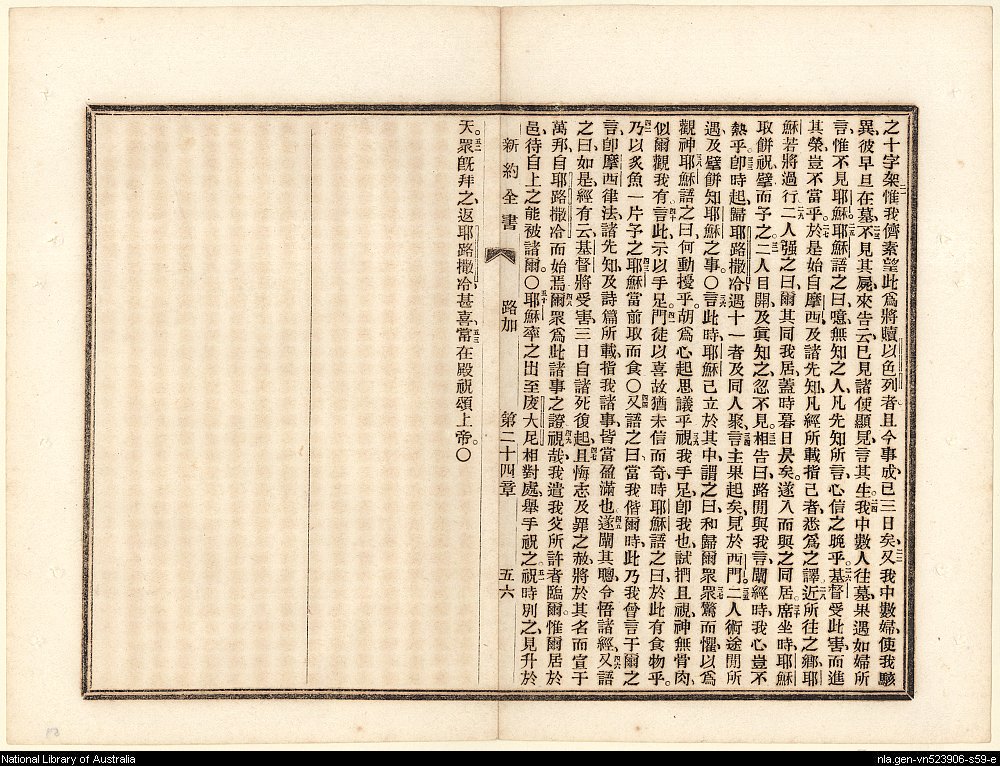 之十字架、惟我儕素望此為將贖以色列者、且今事成已三日矣、又我中數婦使我駭
異、彼早旦在墓、不見其屍、來告云、已見諸使顯見、言其生、我中數人往墓、果遇如婦所
言、惟不見耶穌、耶穌語之曰、噫無知之人、凡先知所言、心信之晚乎、基督受此害、而進
其榮、豈不當乎、於是始自摩西、及諸先知、凡經所載指己者、悉為之譯、近所往之鄉、耶
穌若將過行、二人强之曰、爾其同我居、蓋時暮日昃矣、遂入而與之同居、席坐時、耶穌
取餅祝擘而予之、二人目開、及眞知之、忽不見、相告曰、路間與我言、闡經時、我心豈不
熱乎、卽時起、歸耶路撒冷、遇十一者及同人聚、言主果起矣、見於西門、二人術途間所
遇、及擘餅知耶穌之事。○言此時、耶穌已立於其中、謂之曰、和歸爾衆、衆驚而懼、以為
觀神、耶穌語之曰、何動擾乎、胡為心起思議乎、視我手足、卽我也、試捫且視、神無骨肉、
似爾觀我有、言此、示以手足、門徒以喜故、猶未信而奇時、耶穌語之曰、於此有食物乎。
乃以炙魚一片予之、耶穌當前取而食○又語之曰、當我偕爾時、此乃我曾言于爾之
言、卽摩西律法、諸先知、及詩篇所載指我諸事、皆當盈滿也、遂闡其聰、令悟諸經、又語
之曰、如是經有云、基督將受害、三日自諸死復起、且悔志及罪之赦、將於其名而宣于
萬邦、自耶路撒冷而始焉、爾衆為此諸事之證、視哉、我遣我父所許者臨爾、惟爾居於
邑、待自上之能被諸爾。○耶穌率之出、至庋大尼相對處、舉手祝之、祝時別之、見升於
新約全書 路加 第二十四章 五六
天。衆旣拜之、返耶路撒冷甚喜、常在殿祝頌上帝。○
National Library of Australia
nla.gen-vn523906-s59-e